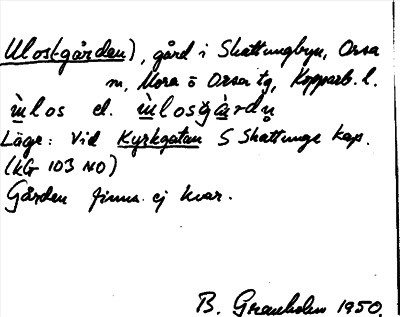 Ulos(-gården), gård i Skattungbyn, Orsa
sn, Mora o Orsa tg, Kopparb. l.
ùlos el. ùlosgàrdn
Läge: Vid Kyrkgatan S Skattunge kap.
(KG 103 NO)
Gården finns ej kvar.
B. Granholm 1950.